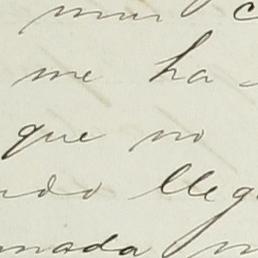 muy c
me ha
que no
ndo lleg
mada m